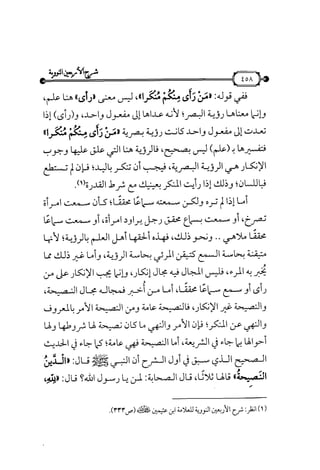 شرح الأربعين النووية
٤٥٨
ففي قوله: «مَنْ رَأَى مِنْكُمْ مُنْكَرًا»، ليس معنى «رأى» هنا علم،
وإنما معناها رؤية البصر؛ لأنه عداها إلى مفعول واحد، و(رأى) إذا
تعدت إلى مفعول واحد كانت رؤية بصرية «مَنْ رَأَى مِنْكُمْ مُنْكَرًا»
فتفسيرها بـ (علم) ليس بصحيح، فالرؤية هنا التي علق عليها وجوب
الإنكار هي الرؤية البصرية، فيجب أن تنكر باليد؛ فإن لم تستطع
فباللسان؛ وذلك إذا رأيت المنكر بعينيك مع شرط القدرة(١).
أما إذا لم تره ولكن سمعته سماعًا محققًا، كأن سمعت امرأة
تصرخ، أو سمعت بسماع محقق رجل يراود امرأة، أو سمعت سماعًا
محققًا ملاهي.. ونحو ذلك، فهذه ألحقها أهل العلم بالرؤية؛ لأنها
متيقنة بحاسة السمع كتيقن المرئي بحاسة الرؤية، وأما غير ذلك مما
يُخبر به المرء، فليس المجال فيه مجال إنكار، وإنما يجب الإنكار على من
رأى أو سمع سماعًا محققًا، أما من أُخبر فمجاله مجال النصيحة،
والنصيحة غير الإنكار، فالنصيحة عامة ومن النصيحة الأمر بالمعروف
والنهي عن المنكر؛ فإن الأمر والنهي ما كان نصيحة لها شروطها ولها
أحوالها بما جاء في الشريعة، أما النصيحة فهي عامة؛ كما جاء في الحديث
الصحيح الذي سبق في أول الشرح أن النبي ﷺ قال: «الدِّينُ
النَّصِيحَةُ» قالها ثلاثًا، قال الصحابة: لمن يا رسول الله؟ قال: «لِلهِ،
(١) انظر: شرح الأربعين النووية للعلامة ابن عثيمين ﷺ (ص٣٣٣).